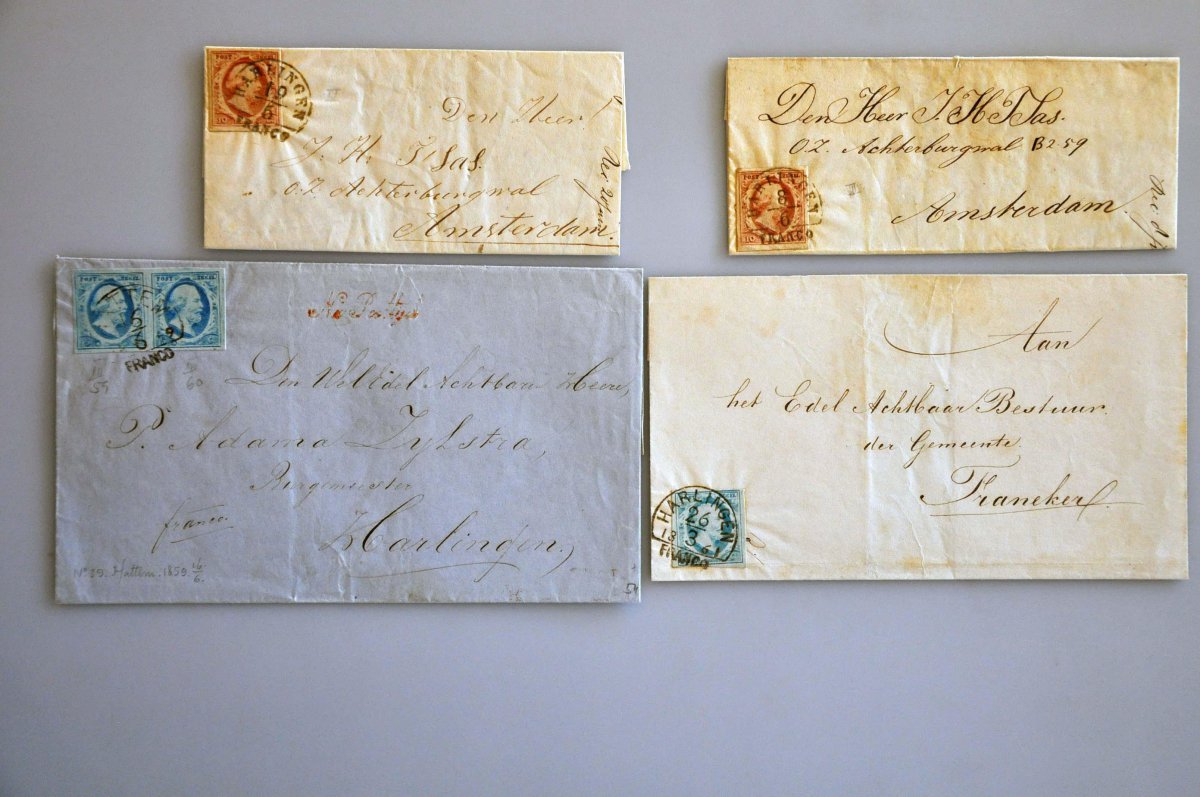 HARLINGEN
FRANCO
10
Den Heer
J. H. T. Sas.
O.Z. Achterburgwal
Amsterdam.
POST ZEGEL
8
FRANCO
10
Den Heer J. H. T. Sas.
O.Z. Achterburgwal B 259
Amsterdam.
POST ZEGEL
POST ZEGEL
FRANCO
Den WelEdel Achtbaar Heere,
P. Adama Zylstra,
Burgemeester
franco
Harlingen,
No 39. Hattem. 1859. 16/6.
Aan
het Edel Achtbaar Bestuur
der Gemeente
Franeker
HARLINGEN
26
3
FRANCO